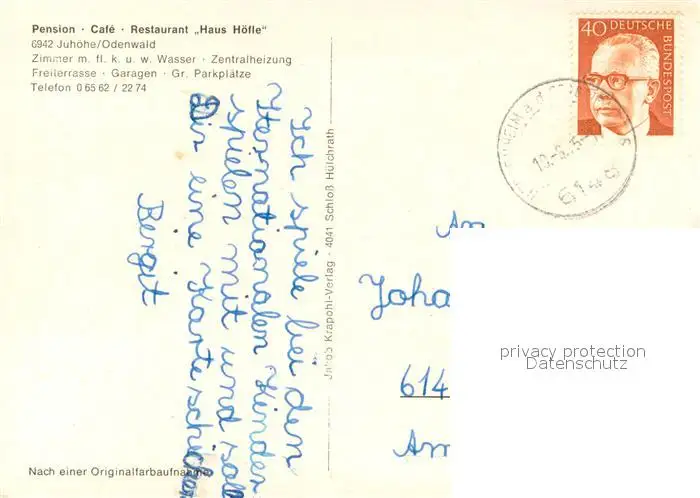 Pension · Café · Restaurant „Haus Höfle"
6942 Juhöhe/Odenwald
Zimmer m. fl. k. u. w. Wasser · Zentralheizung
Freiterrasse · Garagen · Gr. Parkplätze
Telefon 0 65 62 / 22 74
40 DEUTSCHE BUNDESPOST
Ich spiele bei den
Iternationalen Kinder
spielen mit und soll
Dir eine Karte schicken
Bergit
Jakob Krapohl-Verlag · 4041 Schloß Hülchrath
An
Joha
614
Am
privacy protection
Datenschutz
Nach einer Originalfarbaufnahme